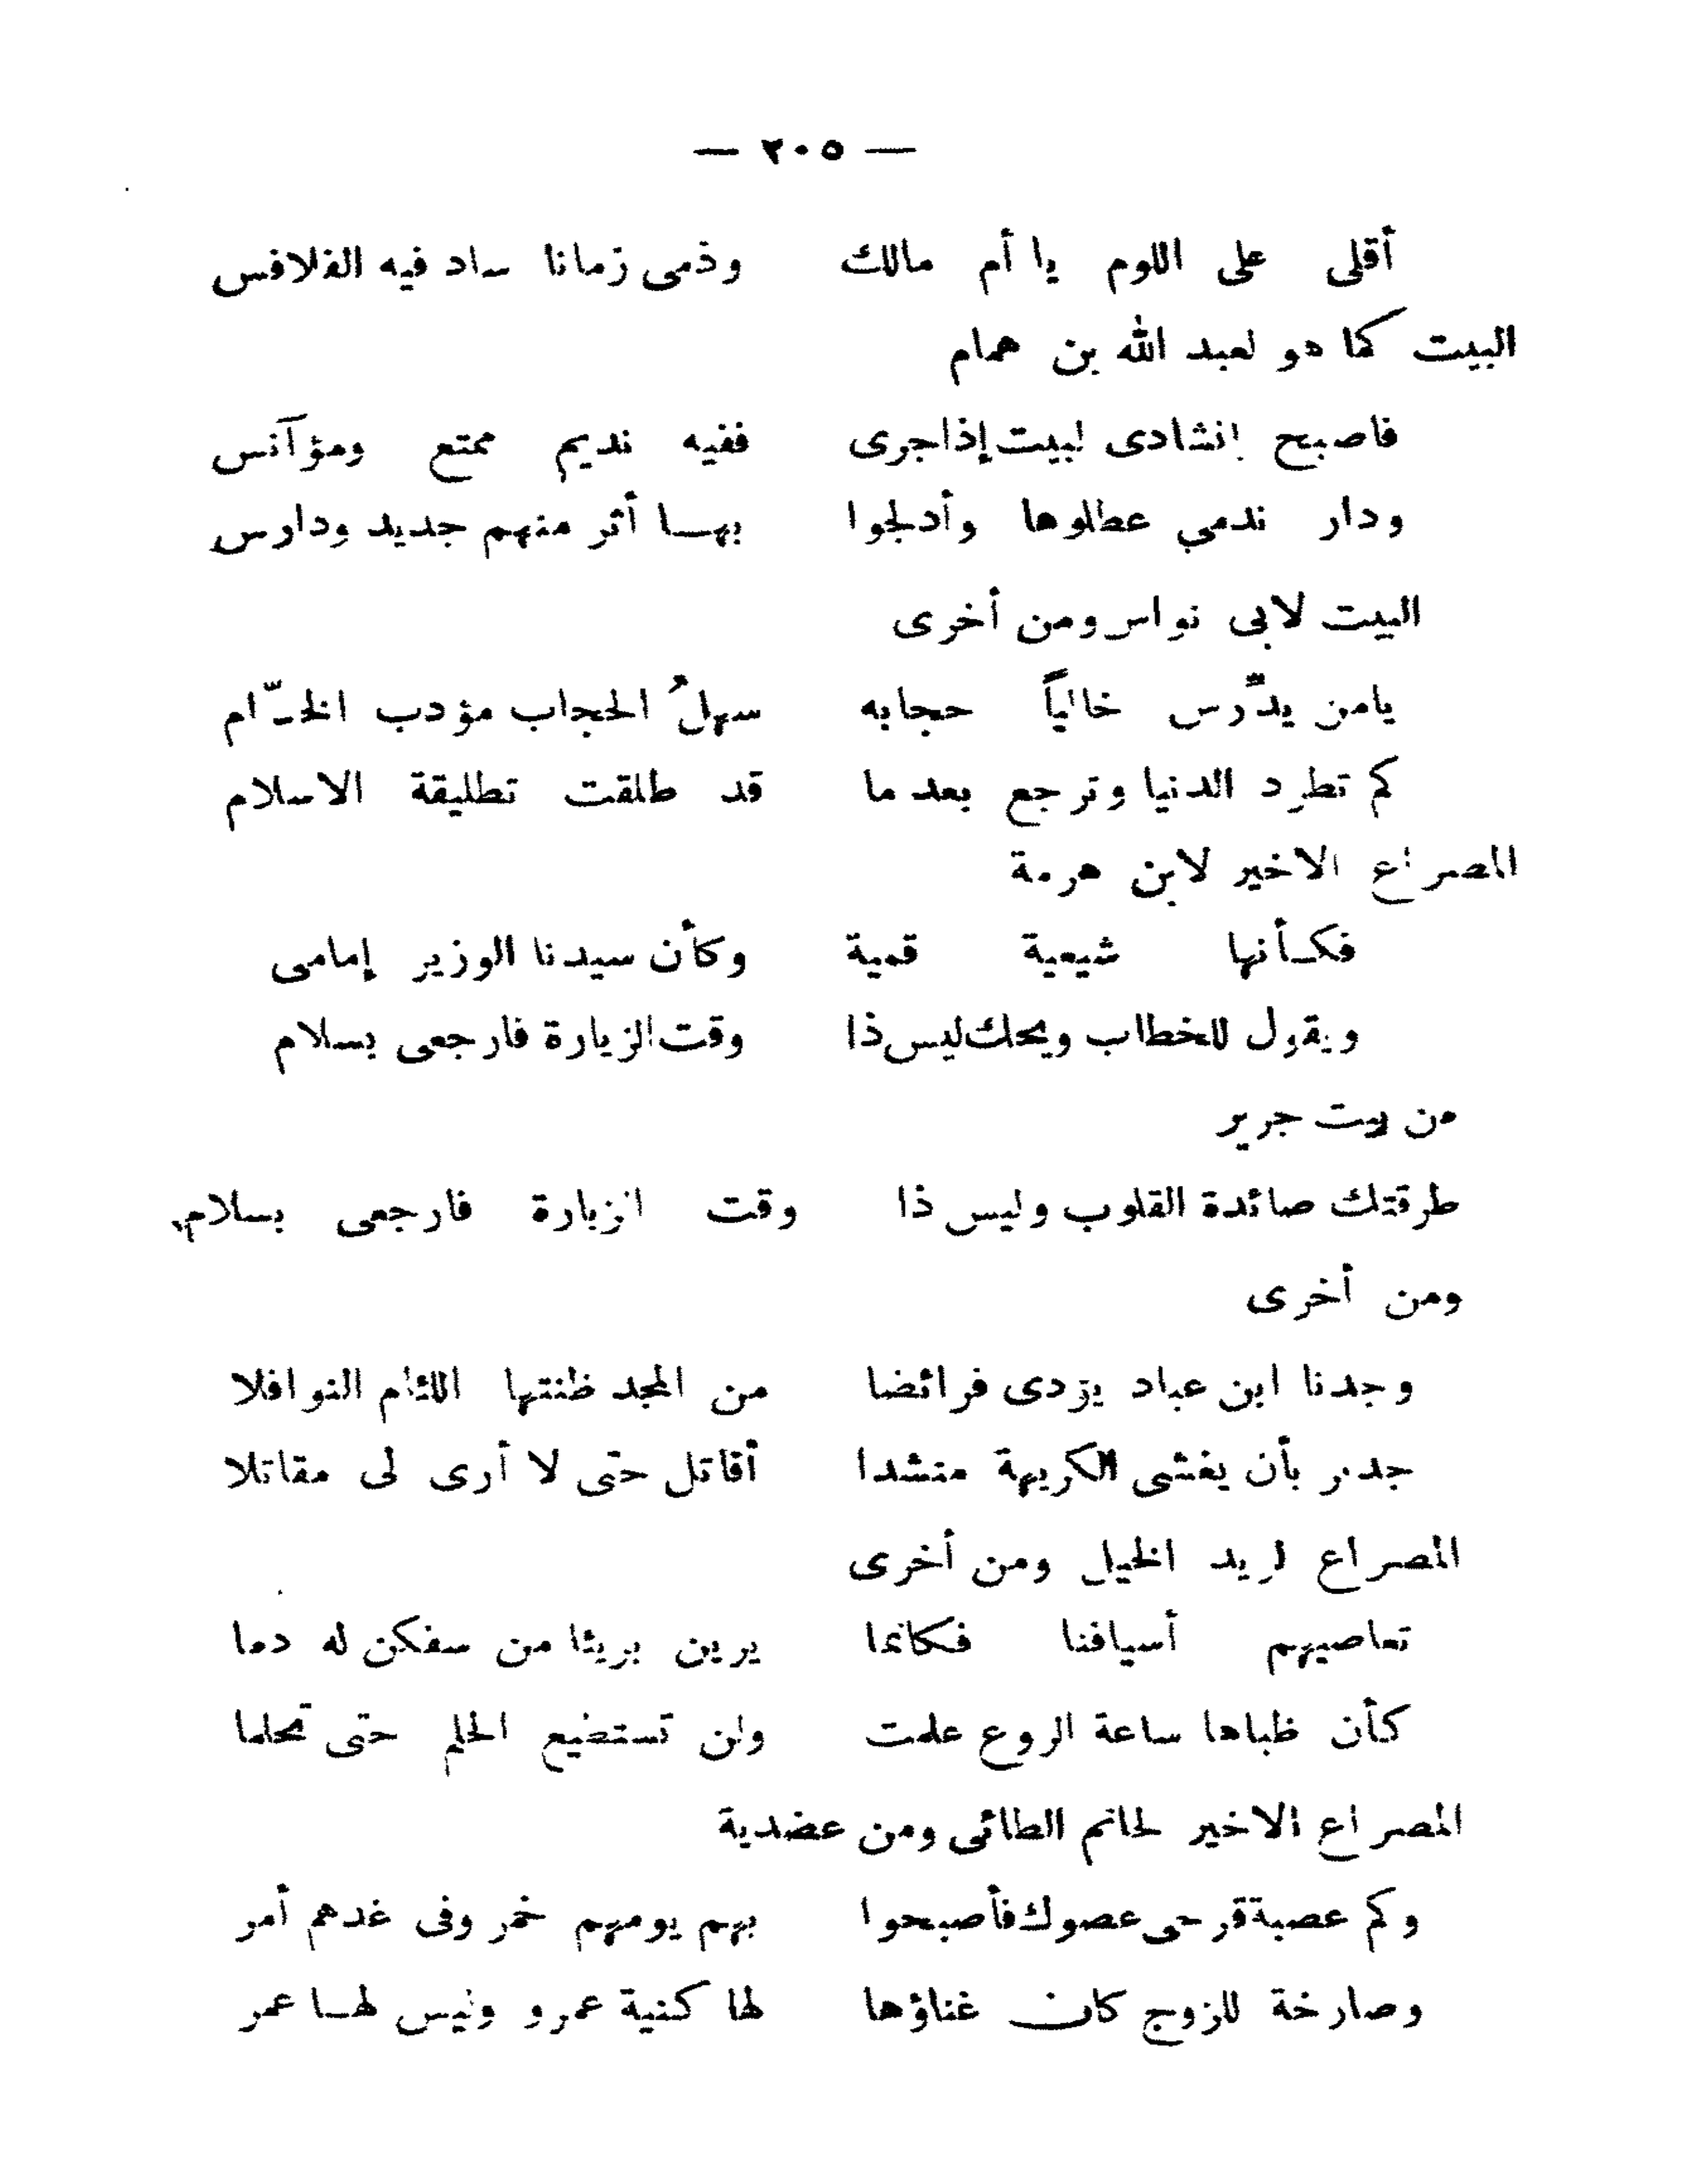 — ٢٠٥ —
أقلى على اللوم يا أم مالك وذمى زمانا ساد فيه الفلافس
البيت كما هو لعبد الله بن همام
فاصبح إنشادى لبيت إذا جرى ففيه نديم ممتع ومؤآنس
ودار ندمي عطلوها وأدلجوا بهـا أثر منهم جديد ودارس
البيت لابى نواس ومن أخرى
يامن يدّرس خالياً حجابه سهلُ الحجاب مؤدب الخـدّام
كم تطرد الدنيا وترجع بعدما قد طلقت تطليقة الاسلام
المصراع الاخير لابن هرمة
فكـأنها شيعية قمية وكأن سيدنا الوزير إمامى
ويقول للخطاب ويحك ليس ذا وقت الزيارة فارجعى بسلام
من بيت جرير
طرقتك صائدة القلوب وليس ذا وقت الزيارة فارجعى بسلام
ومن أخرى
وجدنا ابن عباد يؤدى فرائضا من المجد ظنتها اللئام النوافلا
جدير بأن يغشى الكريهة منشدا أقاتل حتى لا أرى لى مقاتلا
المصراع لزيد الخيل ومن أخرى
تعاصيهم أسيافنا فكانما يرين بريئا من سفكن له دما
كأن ظباها ساعة الروع علمت ولن تستطيع الحلم حتى تحلما
المصراع الاخير لحاتم الطائى ومن عضدية
وكم عصبة قرحى عصوك فأصبحوا بهم يومهم خمر وفى غدهم أمر
وصارخة للزوج كان غناؤها لها كنية عمرو وليس لهـا عمر